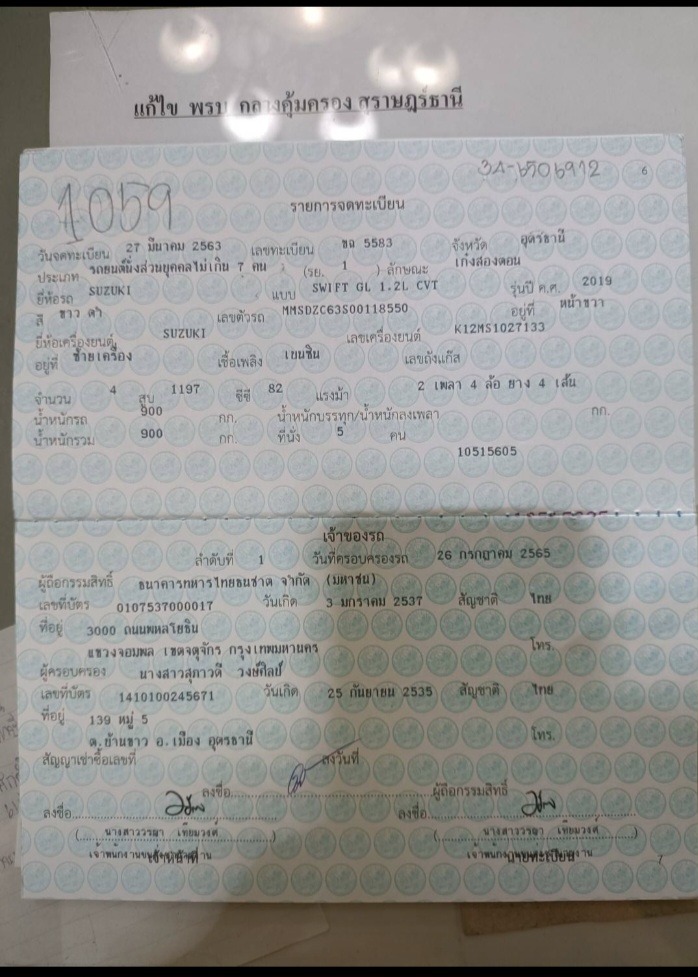 แก้ไข พรบ กลางคุ้มครอง สุราษฎร์ธานี
1059
34-6506912 6
รายการจดทะเบียน
วันจดทะเบียน 27 มีนาคม 2563 เลขทะเบียน ขฉ 5583 จังหวัด อุดรธานี
ประเภท รถยนต์นั่งส่วนบุคคลไม่เกิน 7 คน (รย. 1 ) ลักษณะ เก๋งสองตอน
ยี่ห้อรถ SUZUKI แบบ SWIFT GL 1.2L CVT รุ่นปี ค.ศ. 2019
สี ขาว ดำ เลขตัวรถ MMSDZC63S00118550 อยู่ที่ หน้าขวา
ยี่ห้อเครื่องยนต์ SUZUKI เลขเครื่องยนต์ K12MS1027133
อยู่ที่ ซ้ายเครื่อง เชื้อเพลิง เบนซิน เลขถังแก๊ส
จำนวน 4 สูบ 1197 ซีซี 82 แรงม้า 2 เพลา 4 ล้อ ยาง 4 เส้น
น้ำหนักรถ 900 กก. น้ำหนักบรรทุก/น้ำหนักลงเพลา กก.
น้ำหนักรวม 900 กก. ที่นั่ง 5 คน
10515605
เจ้าของรถ
ลำดับที่ 1 วันที่ครอบครองรถ 26 กรกฎาคม 2565
ผู้ถือกรรมสิทธิ์ ธนาคารทหารไทยธนชาต จำกัด (มหาชน)
เลขที่บัตร 0107537000017 วันเกิด 3 มกราคม 2537 สัญชาติ ไทย
ที่อยู่ 3000 ถนนพหลโยธิน
แขวงจอมพล เขตจตุจักร กรุงเทพมหานคร โทร.
ผู้ครอบครอง นางสาวสุภาวดี วงษ์ศิลป์
เลขที่บัตร 1410100245671 วันเกิด 25 กันยายน 2535 สัญชาติ ไทย
ที่อยู่ 139 หมู่ 5
ต.บ้านขาว อ.เมือง อุดรธานี โทร.
สัญญาเช่าซื้อเลขที่ ลงวันที่
ลงชื่อ ผู้ถือกรรมสิทธิ์
ลงชื่อ ลงชื่อ
( นางสาววรรษา เทียมวงศ์ ) ( นางสาววรรษา เทียมวงศ์ )
นายทะเบียน
7